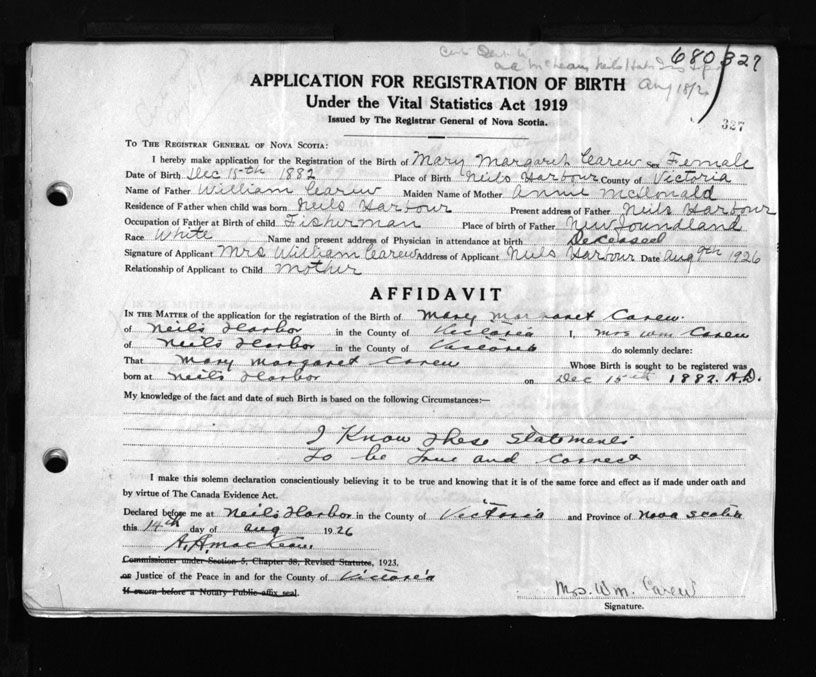 680 327
Aug 18/26
APPLICATION FOR REGISTRATION OF BIRTH
Under the Vital Statistics Act 1919
Issued by The Registrar General of Nova Scotia.
327
TO THE REGISTRAR GENERAL OF NOVA SCOTIA:
I hereby make application for the Registration of the Birth of Mary Margaret Carew Sex Female
Date of Birth Dec 15th 1882 Place of Birth Neils Harbour County of Victoria
Name of Father William Carew Maiden Name of Mother Annie McDonald
Residence of Father when child was born Neils Harbour Present address of Father Neils Harbour
Occupation of Father at Birth of child Fisherman Place of birth of Father Newfoundland
Race White Name and present address of Physician in attendance at birth Deceased
Signature of Applicant Mrs William Carew Address of Applicant Neils Harbour Date Aug 9th 1926
Relationship of Applicant to Child mother
AFFIDAVIT
IN THE MATTER of the application for the registration of the Birth of Mary Margaret Carew.
of Neils Harbor in the County of Victoria I, Mrs Wm Carew
of Neils Harbor in the County of Victoria do solemnly declare:
That Mary Margaret Carew Whose Birth is sought to be registered was
born at Neils Harbor on Dec 15th 1882. A.D.
My knowledge of the fact and date of such Birth is based on the following Circumstances:—
I Know These Statements
To be True and Correct
I make this solemn declaration conscientiously believing it to be true and knowing that it is of the same force and effect as if made under oath and
by virtue of The Canada Evidence Act.
Declared before me at Neils Harbor in the County of Victoria and Province of Nova Scotia
this 14th day of Aug 1926
A. A. MacLean.
Commissioner under Section 5, Chapter 38, Revised Statutes, 1923.
or Justice of the Peace in and for the County of Victoria
If sworn before a Notary Public affix seal.
Mrs. Wm. Carew
Signature.